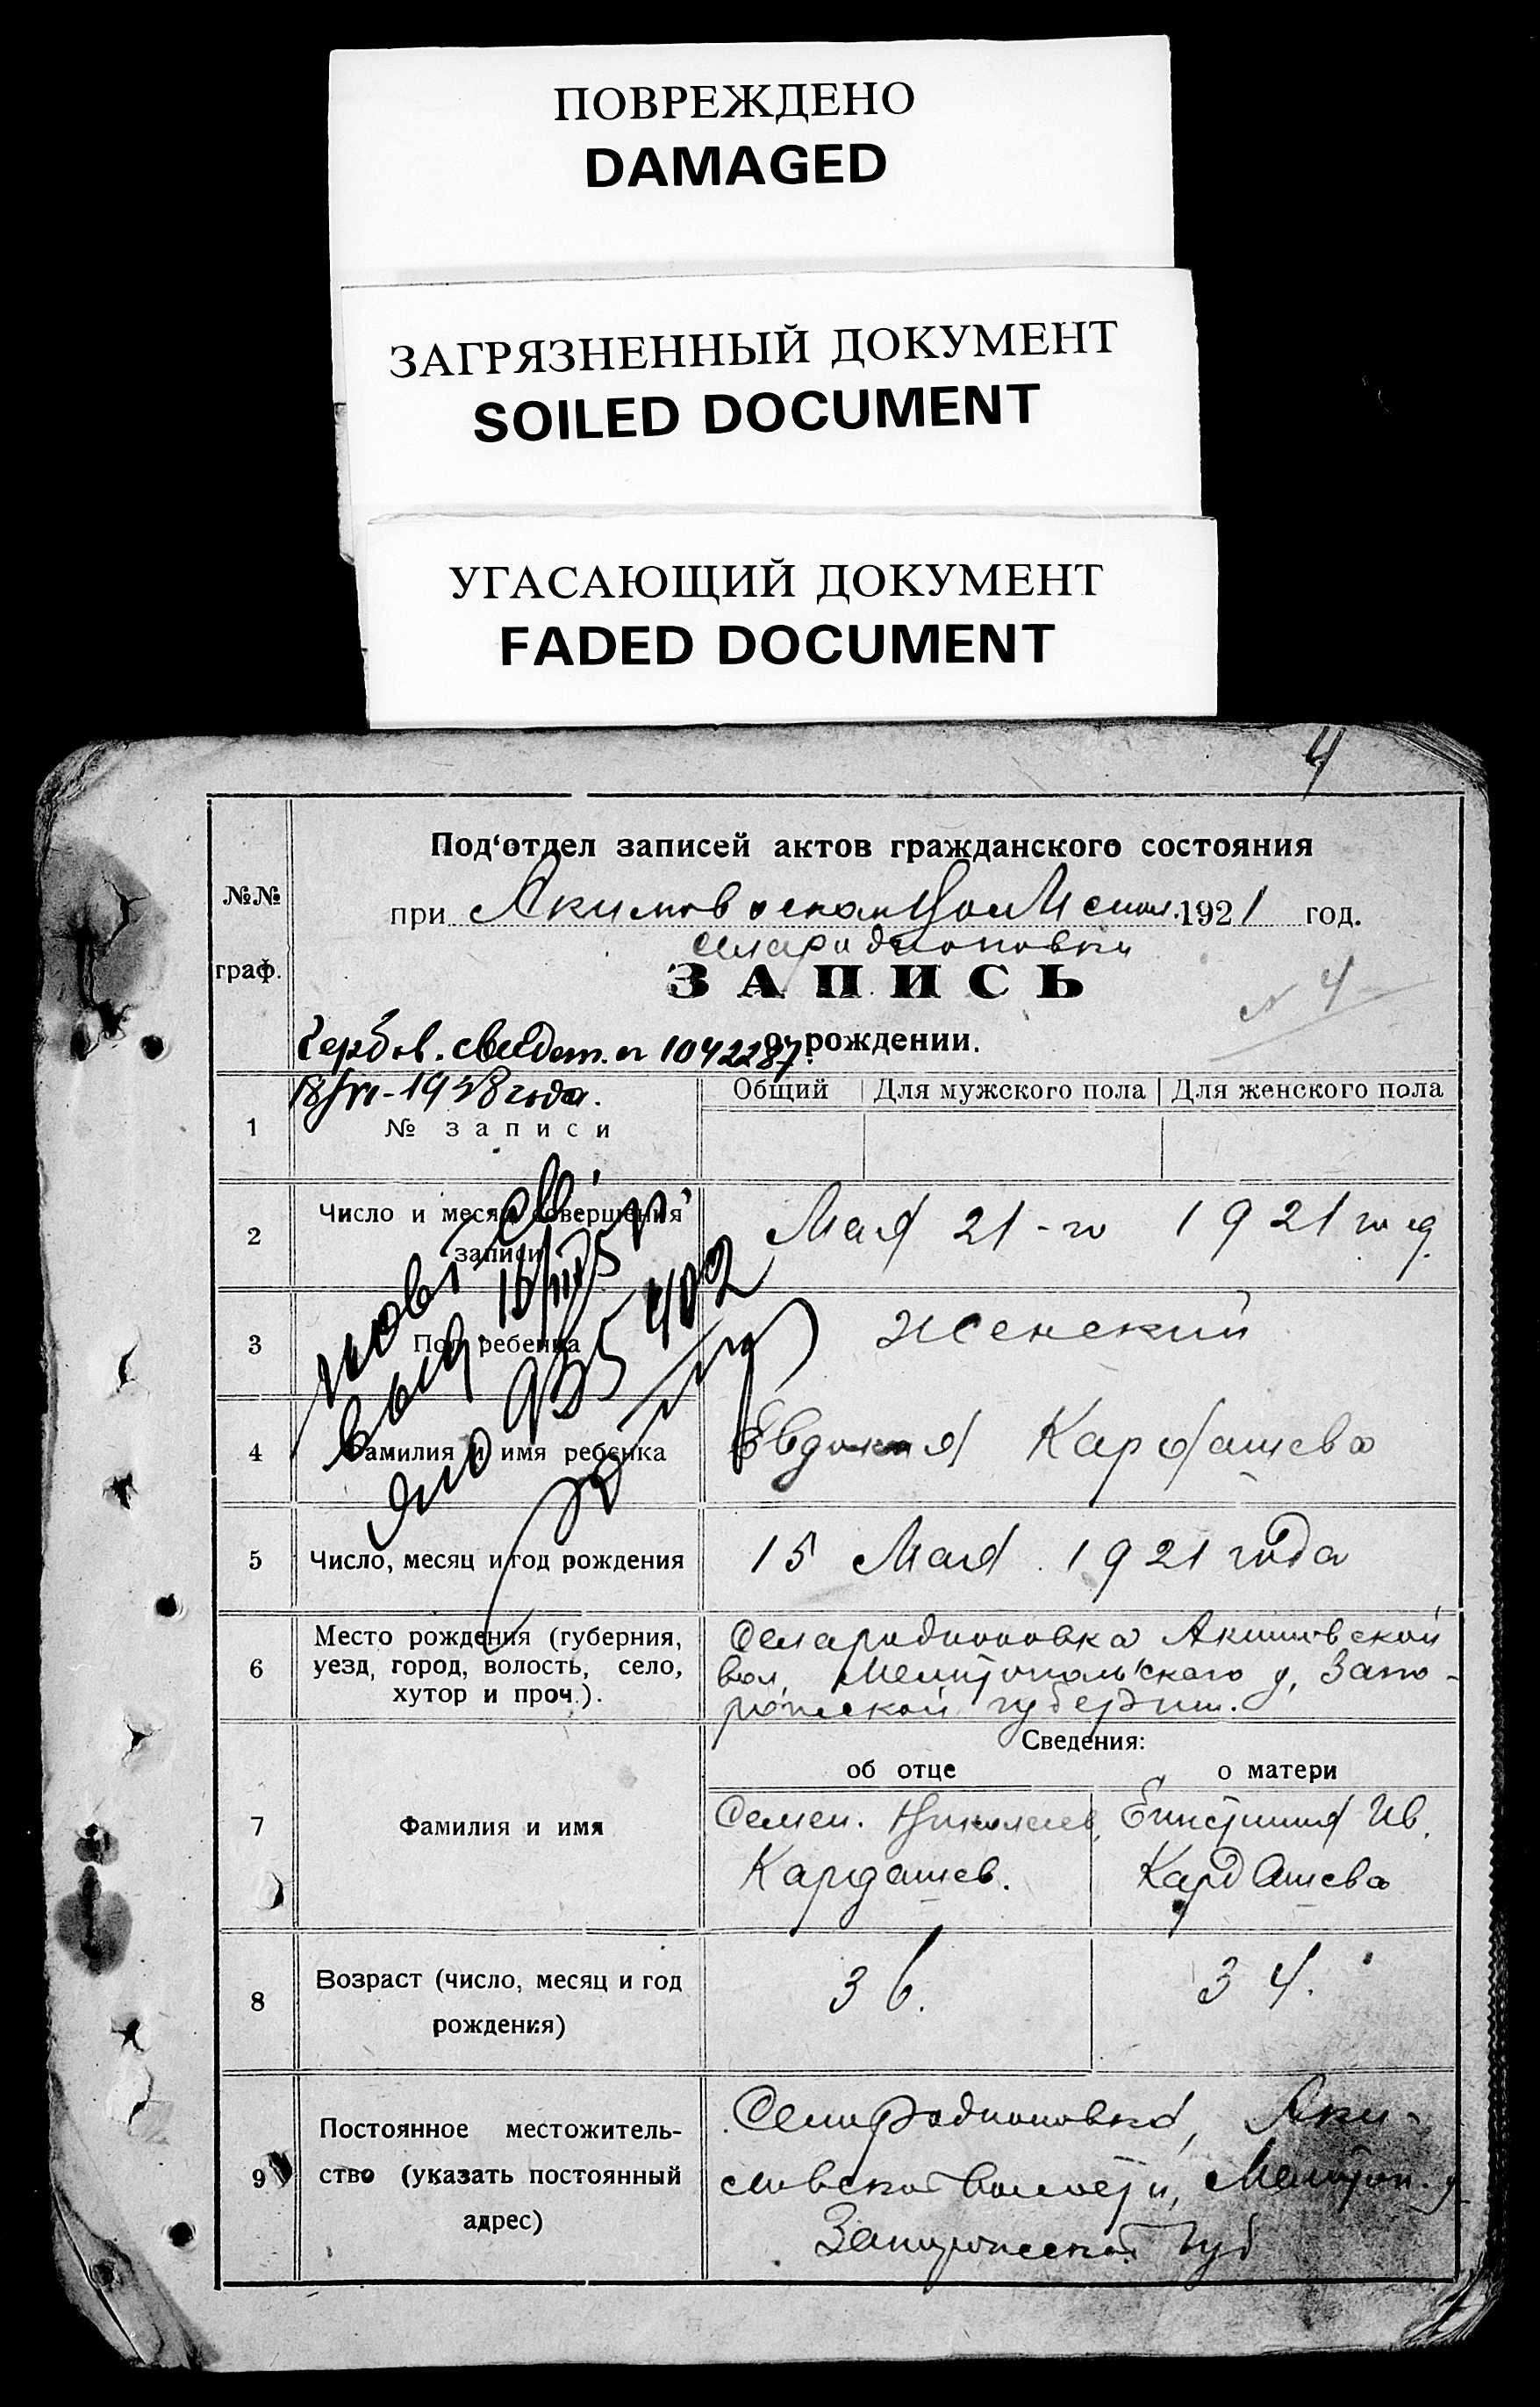 ПОВРЕЖДЕНО
DAMAGED
ЗАГРЯЗНЕННЫЙ ДОКУМЕНТ
SOILED DOCUMENT
УГАСАЮЩИЙ ДОКУМЕНТ
FADED DOCUMENT
4
Под‘отдел записей актов гражданского состояния
№№ граф.
при 1921 год.
ЗАПИСЬ
№ 4
о рождении.
свидет. № 1042287.
1958 года.
Общий Для мужского пола Для женского пола
1 № записи
2 Число и месяц совершения записи
Мая 21-го 1921 год
3 Пол ребенка
Женский
4 Фамилия и имя ребенка
Евдокия Кардашева
5 Число, месяц и год рождения
15 Мая 1921 года
6 Место рождения (губерния,
уезд, город, волость, село,
хутор и проч.).
Акимовской
вол. Мелитопольского у, Запо-
рожской губернии.
Сведения:
об отце о матери
7 Фамилия и имя
Семен. Николаев. Ив.
Кардашев. Кардашева
8 Возраст (число, месяц и год
рождения)
36. 34.
9 Постоянное местожитель-
ство (указать постоянный
адрес)
Аки-
мовской волости, Мелитоп. у
Запорожской губ